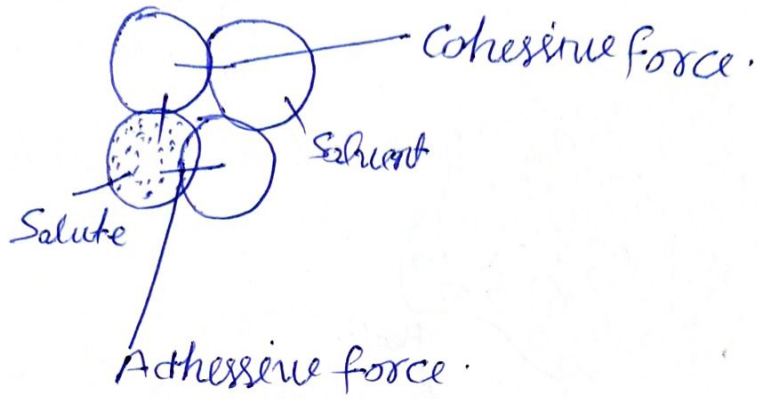 Cohessive force.
Solvent
Salute
Adhessive force.